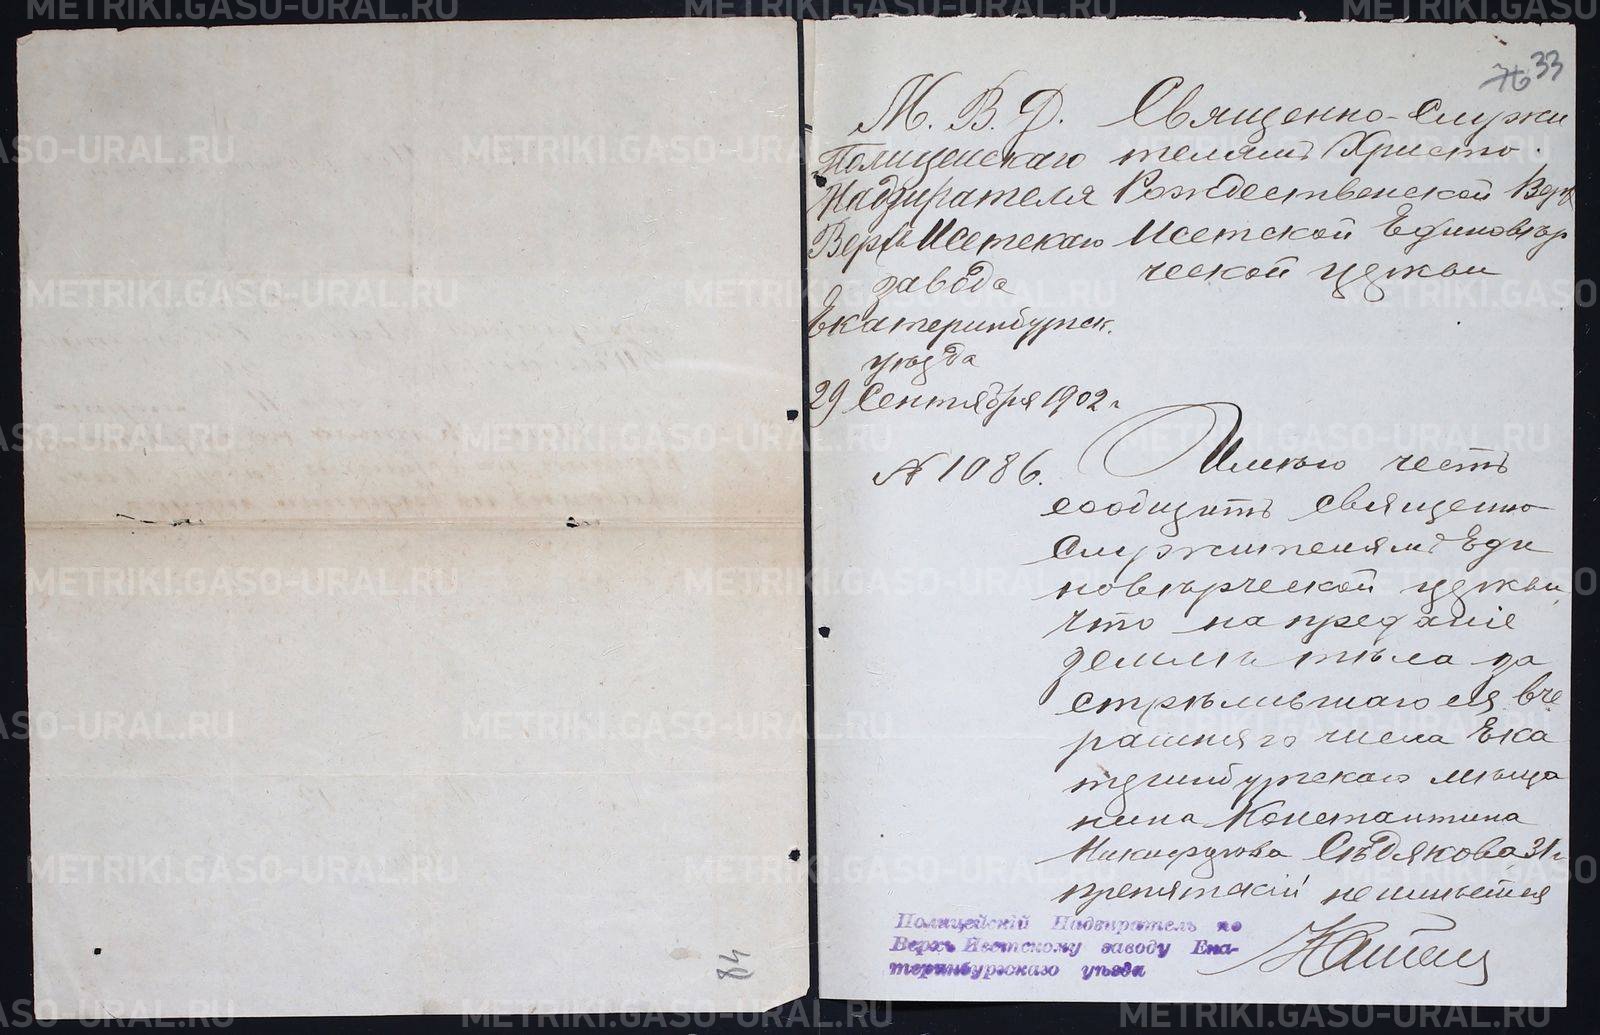 33
М. В. Д.
Полицейскаго
Надзирателя
Верхъ Исетскаго
завода
Екатеринбургск.
уѣзда
29 Сентября 1902 г
№ 1086.
Священно-служи
телямъ Христо
Рождественской Верх
Исетской Единовѣр
ческой церкви
Имѣю честь
сообщить священно
служителямъ Еди
новѣрческой церкви,
что на преданіе
землѣ тѣла за
стрѣлившагося вче
рашняго числа Ека
теринбургскаго мѣща
нина Константина
Никифорова Сѣдякова 31 г
препятствій не имѣется
Полицейскій Надзиратель по
Верхъ Исетскому заводу Ека-
теринбургскаго уѣзда
84
METRIKI.GASO-URAL.RU